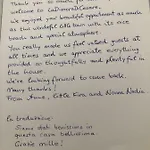 Thank you so much for
welcome to CaDamerìDeamore.
We enjoyed your beautiful apartment as much
as this wonderful little town with its nice
beach and special atmosphere.
You really made us feel valued guests at
all times and we appreciate everything
provided so thoughtfully and plentiful in
the house.
We're looking forward to come back.
Many thanks!
From Anna, Little Eva, and Nonna Nadia
la traduzione:
Siamo stati benissimo in
questa casa bellissima
Grazie mille!